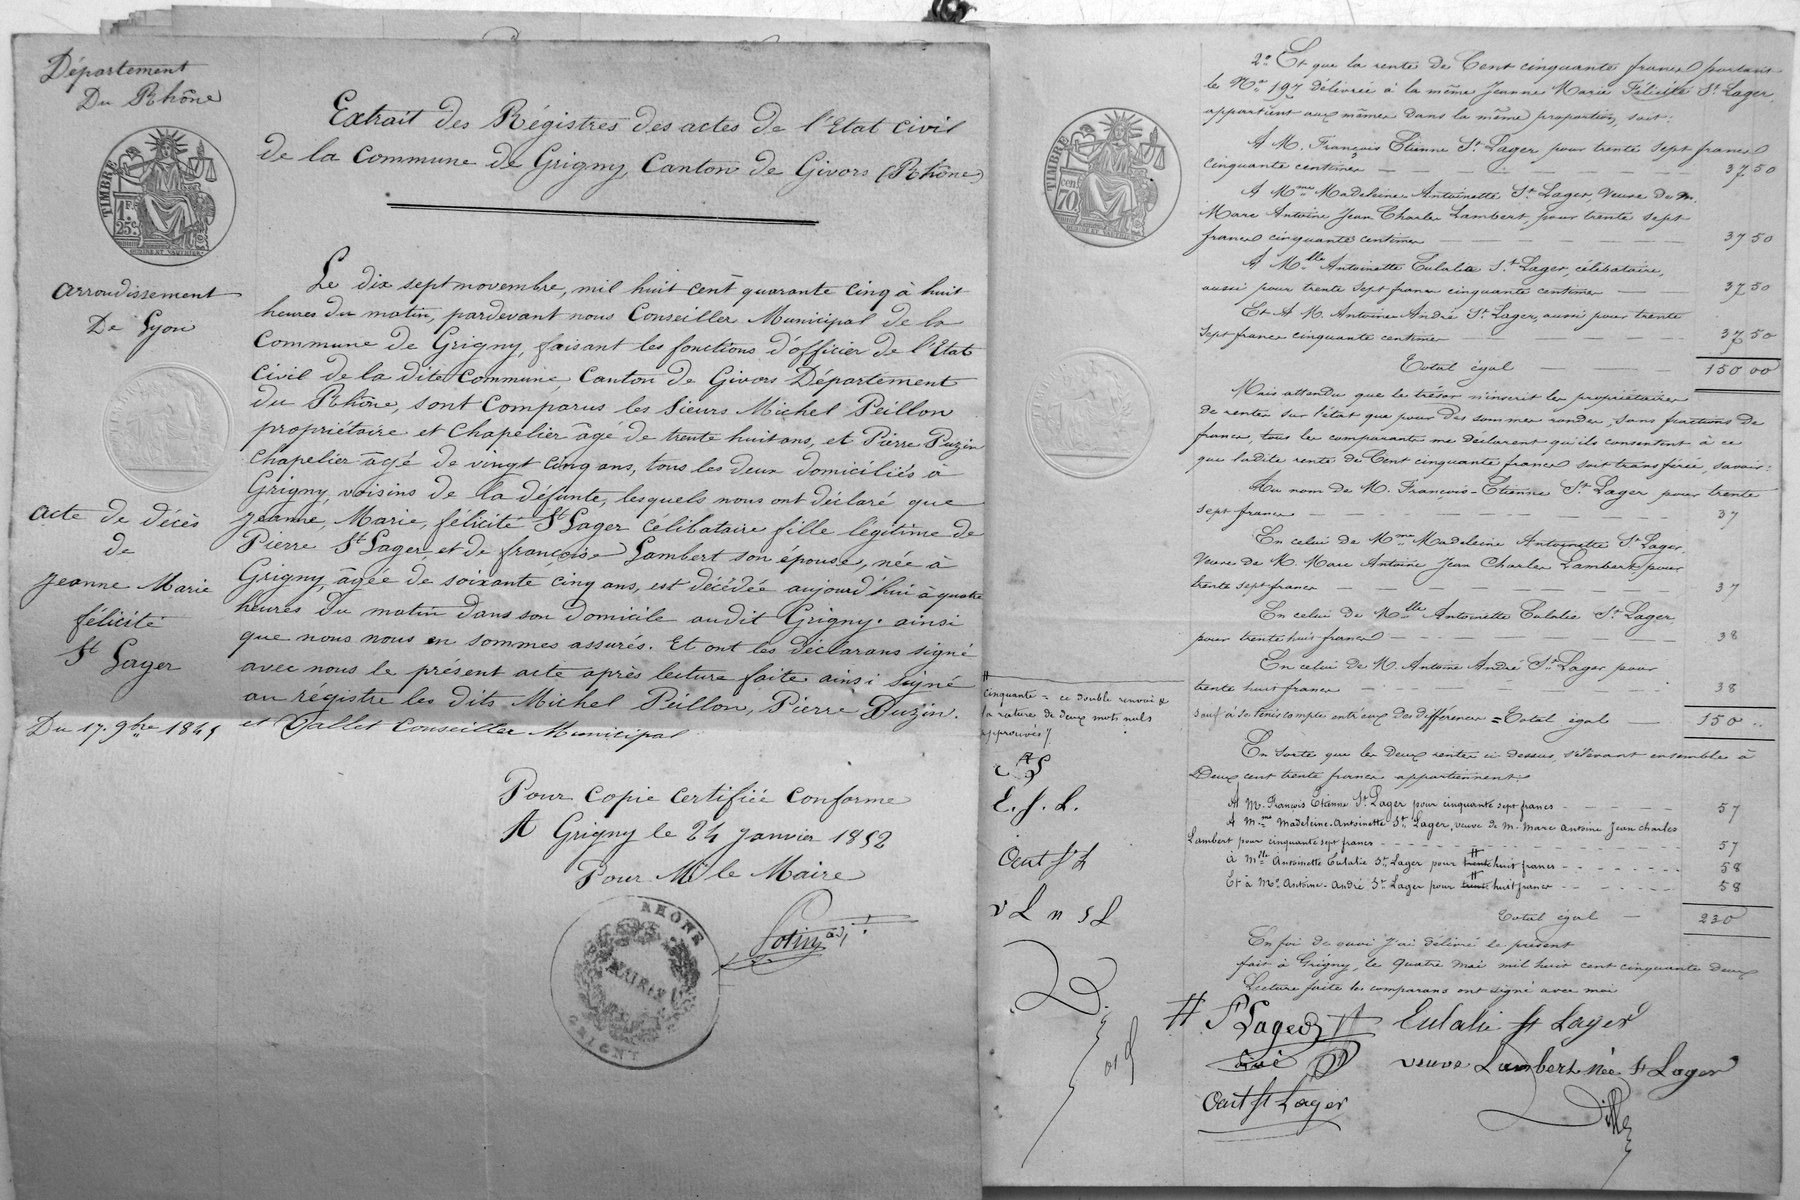 Département
Du Rhône
TIMBRE
1F.
25c.
Arrondissement
De Lyon
Acte de décès
de
Jeanne Marie
félicité
St Lager
Du 17. 9bre 1845
Extrait des Régistres des actes de l'Etat civil
de la Commune de Grigny Canton de Givors (Rhône)
Le dix sept novembre, mil huit cent quarante cinq à huit
heures du matin, pardevant nous Conseiller Municipal de la
Commune de Grigny, faisant les fonctions d'officier de l'Etat
civil de la dite Commune Canton de Givors Département
du Rhône, sont Comparus les Sieurs Michel Peillon
propriétaire et Chapelier âgé de trente huit ans, et Pierre Puzin
Chapelier âgé de vingt cinq ans, tous les deux domiciliés à
Grigny, voisins de la défunte, lesquels nous ont déclaré que
Jeanne, Marie, félicité St Lager Célibataire fille légitime de
Pierre St Lager et de françoise Lambert son épouse, née à
Grigny, âgée de soixante cinq ans, est décédée aujourd'hui à quatre
heures du matin dans son domicile audit Grigny. ainsi
que nous nous en sommes assurés. Et ont les déclarans signé
avec nous le présent acte après lecture faite ainsi signé
au registre les dits Michel Peillon, Pierre Puzin.
et Vallet Conseiller Municipal
Pour Copie Certifiée Conforme
A Grigny le 24 Janvier 1852
Pour Mr le Maire
RHÔNE
MAIRIE
GRIGNY
2º Et que la rente de Cent cinquante francs portant
le Nº 197 délivrée à la même Jeanne Marie Félicité St Lager,
appartient aux mêmes dans la même proportion, soit:
A M. François Etienne St Lager pour trente sept francs
cinquante centimes 37 50
A Mme Madeleine Antoinette St Lager, Veuve de M.
Marc Antoine Jean Charles Lambert, pour trente sept
francs cinquante centimes 37 50
A Mlle Antoinette Eulalie St Lager, célibataire,
aussi pour trente sept francs cinquante centimes 37 50
Et A M. Antoine André St Lager, aussi pour trente
sept francs cinquante centimes 37 50
Total égal 150 00
Mais attendu que le trésor n'inscrit les propriétaires
de rentes sur l'état que pour des sommes rondes, sans fractions de
francs, tous les comparants me déclarent qu'ils consentent à ce
que ladite rente de Cent cinquante francs soit transférée, savoir:
Au nom de M. François-Etienne St Lager pour trente
sept francs 37
En celui de Mme Madeleine Antoinette St Lager,
Veuve de M. Marc Antoine Jean Charles Lambert, pour
trente sept francs 37
En celui de Mlle Antoinette Eulalie St Lager
pour trente huit francs 38
En celui de M. Antoine André St Lager pour
trente huit francs 38
sauf à se tenir compte entr'eux des différences = Total égal 150 ..
En sorte que les deux rentes ci-dessus s'élevant ensemble à
Deux cent trente francs appartiennent:
A M. François Etienne St Lager pour cinquante sept francs 57
A Mme Madeleine-Antoinette St Lager, veuve de M. Marc Antoine Jean Charles
Lambert pour cinquante sept francs 57
à Mlle Antoinette Eulalie St Lager pour trente huit francs 58
Et à Mr Antoine-André St Lager pour trente huit francs 58
Total égal 230
En foi de quoi j'ai délivré le présent
fait à Grigny, le quatre mai mil huit cent cinquante deux
Lecture faite les comparans ont signé avec moi
TIMBRE
cen.
70
cinquante = ce double renvoi &
la rature de deux mots nuls
approuvés
E. S. L.
v L n S L
St Lager
Eulalie St Lager
ainé
veuve Lambert née St Lager
Ant St Lager